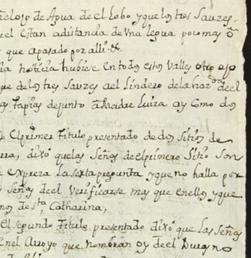 el ojo de Agua de el Lobo y que los tres Sauzes
el Citan adistancia de Vna legua poco mas ô
que apasado por alli
ia noticia hubiese Entodos estos Valles otro ojo
que de los tres Sauzes
tapias de junto
El primer Titulo presentado de dos Sitios de
dixô quelas Señas de el primero Sitio son
Expreza la sexta pregunta y que no halla por
Señas de el Verificarse mas que en ellos y que
de sta Catharina
el segundo Titulo presentado dixô que las Señas
En el Arroyo que nombran oy de el Durazno